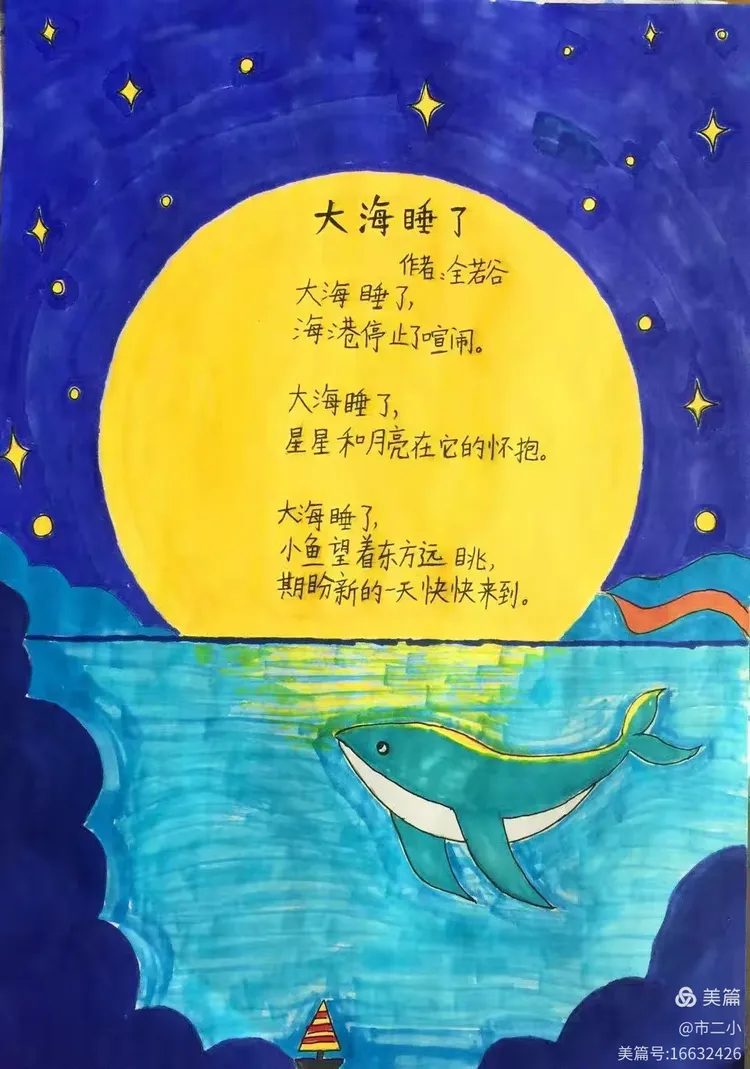 大海睡了
作者:全若谷
大海睡了,
海港停止了喧闹。
大海睡了,
星星和月亮在它的怀抱。
大海睡了,
小鱼望着东方远眺,
期盼新的一天快快来到。
美篇
@市二小
美篇号:16632426